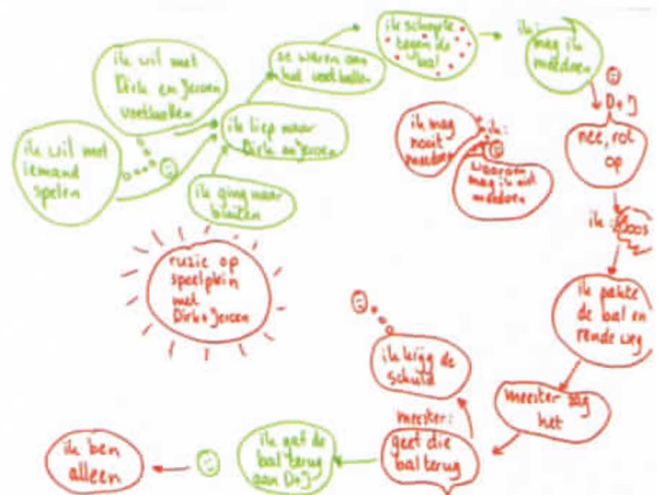 ik wil met
Dirk en Jeroen
voetballen
ik wil met
iemand
spelen
ik ging naar
buiten
ik liep naar
Dirk en Jeroen
ze waren aan
het voetballen
ik schopte
tegen de
bal
ik:
mag ik
meedoen
D+J
nee, rot
op
ik mag
nooit
meedoen
ik:
waarom
mag ik niet
meedoen
ik: Boos
ik pakte
de bal en
rende weg
meester zag
het
meester:
geef die
bal terug
ik krijg de
schuld
ik gaf de
bal terug
aan D+J
ik ben
alleen
ruzie op
speelplein
met
Dirk+Jeroen